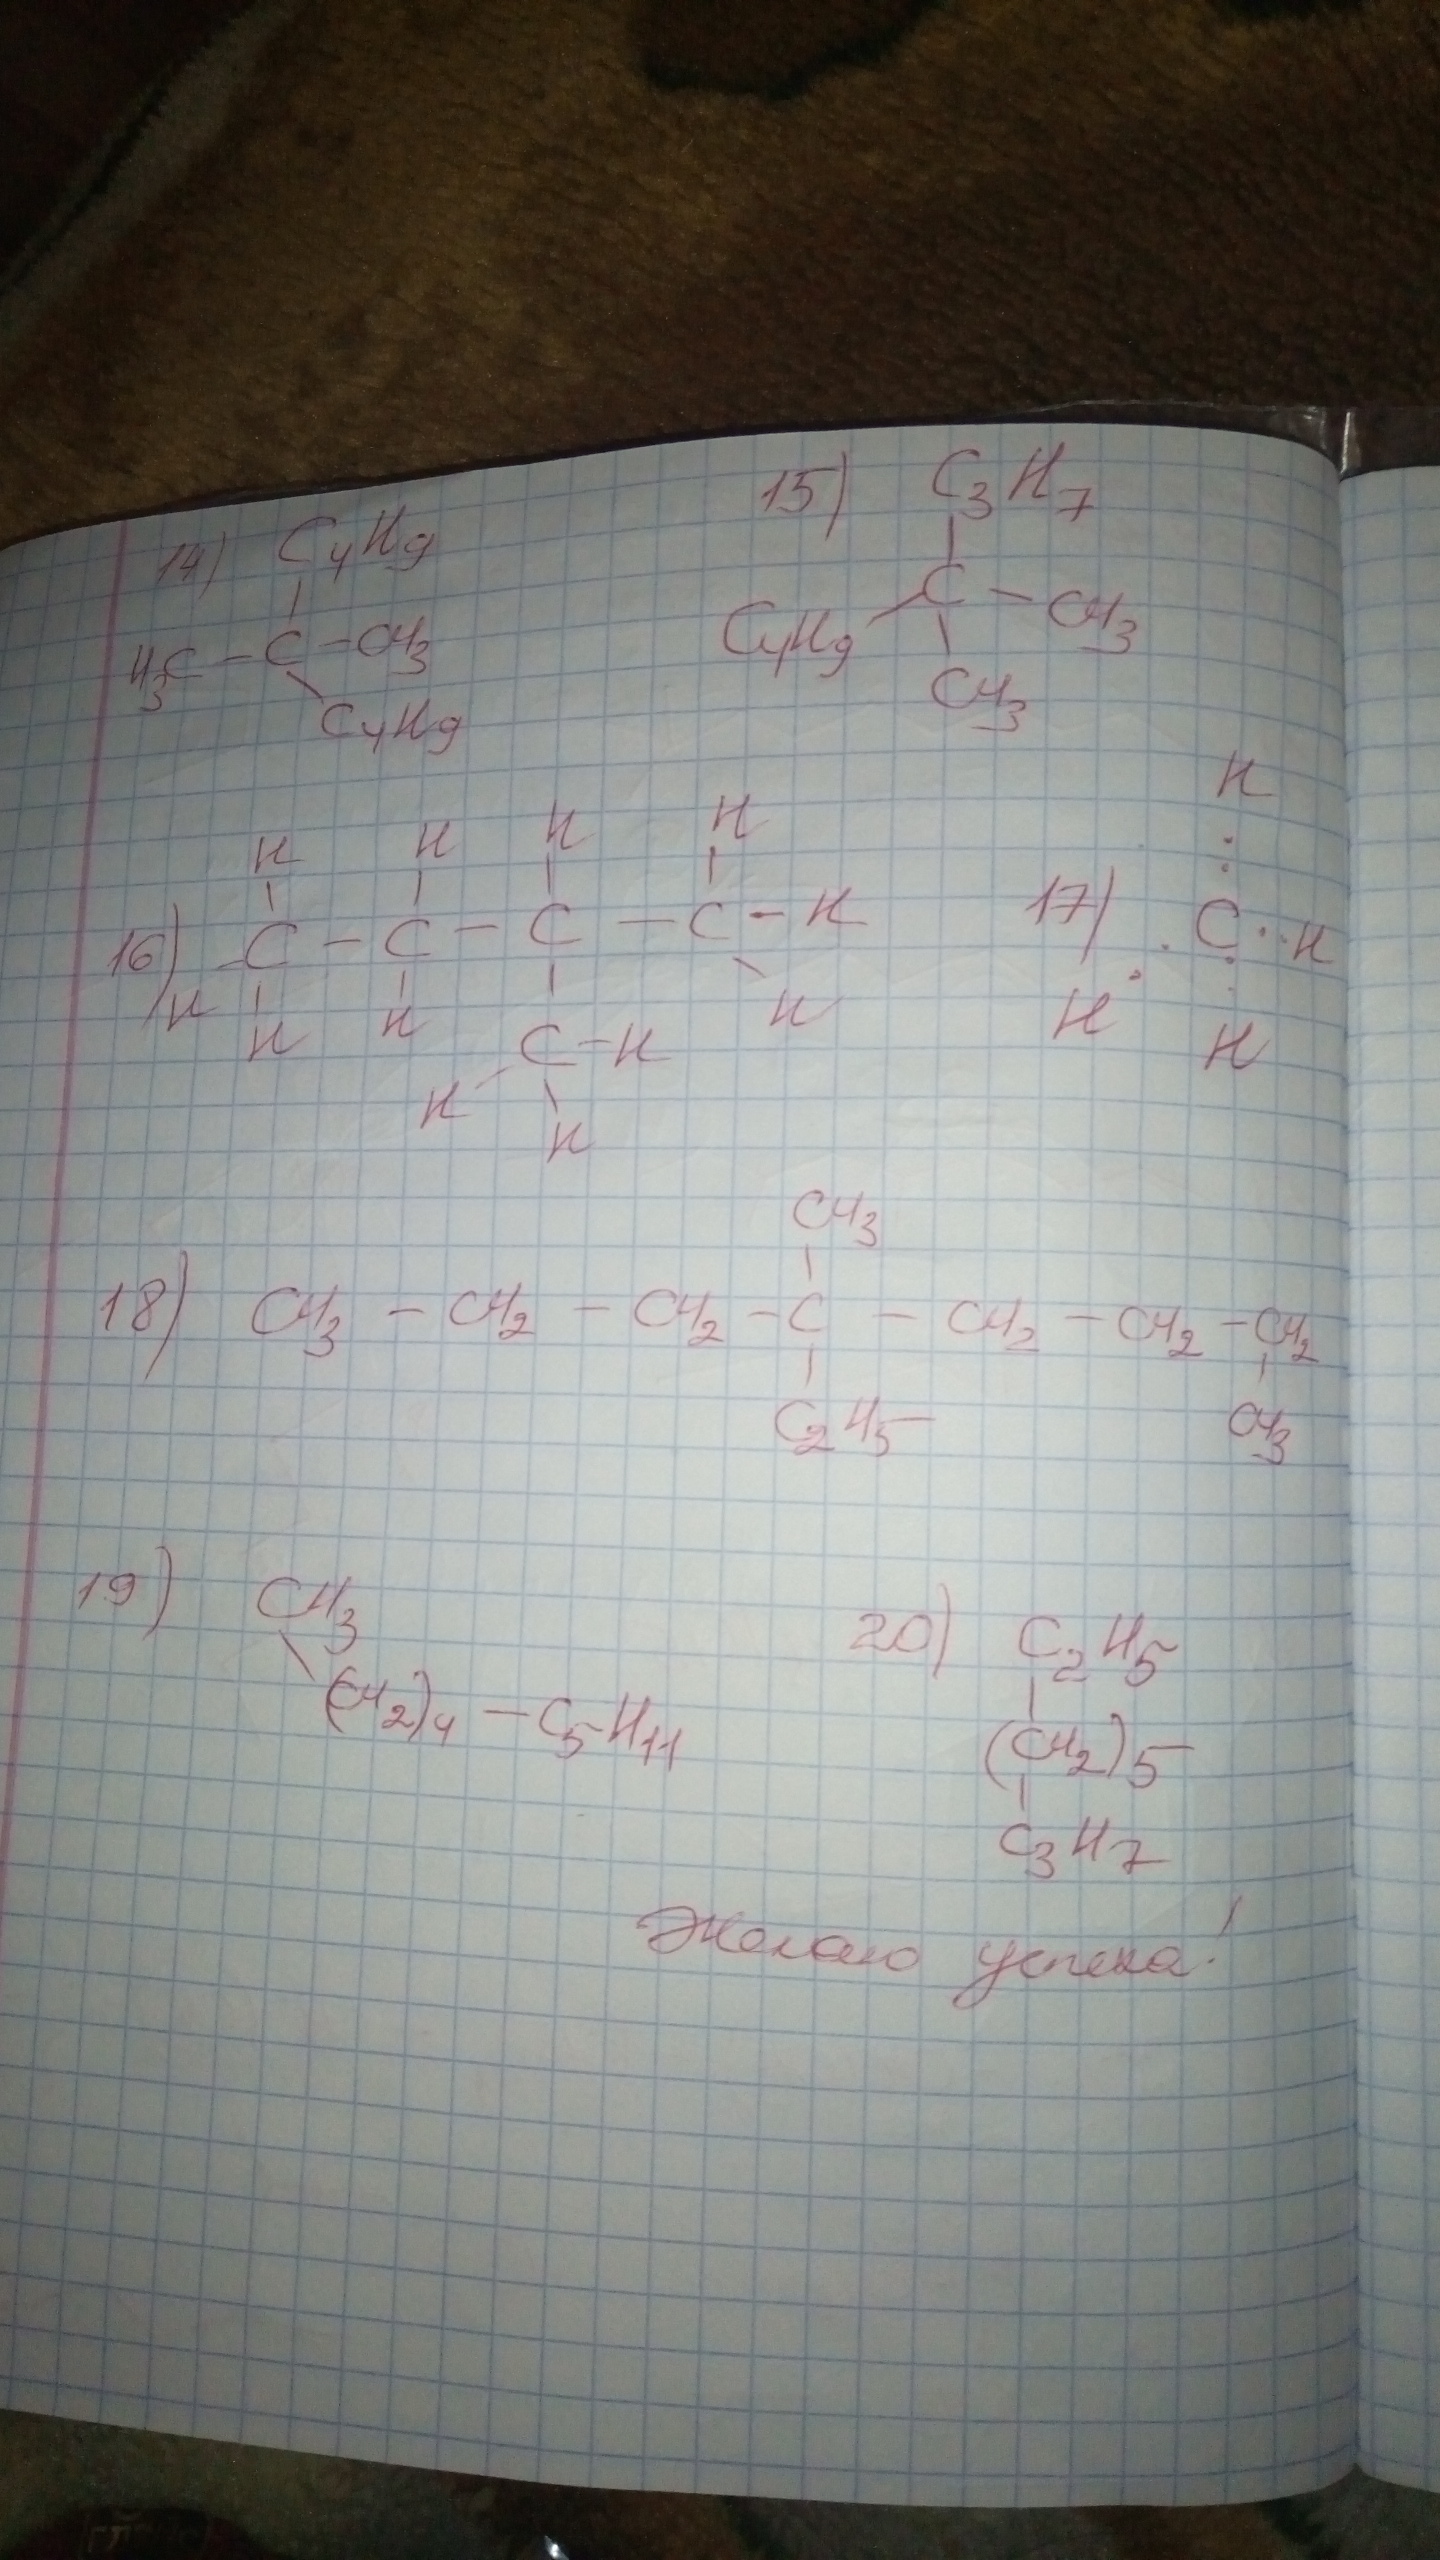 14) C4H9
H3C - C - CH3
C4H9
15) C3H7
C4H9 - C - CH3
CH3
16) H H H H
H - C - C - C - C - H
H H H
C - H
H H
17) H
: C : H
H H
18) CH3
CH3 - CH2 - CH2 - C - CH2 - CH2 - CH2
C2H5 CH3
19) CH3
(CH2)4 - C5H11
20) C2H5
(CH2)5
C3H7
Желаю успеха!